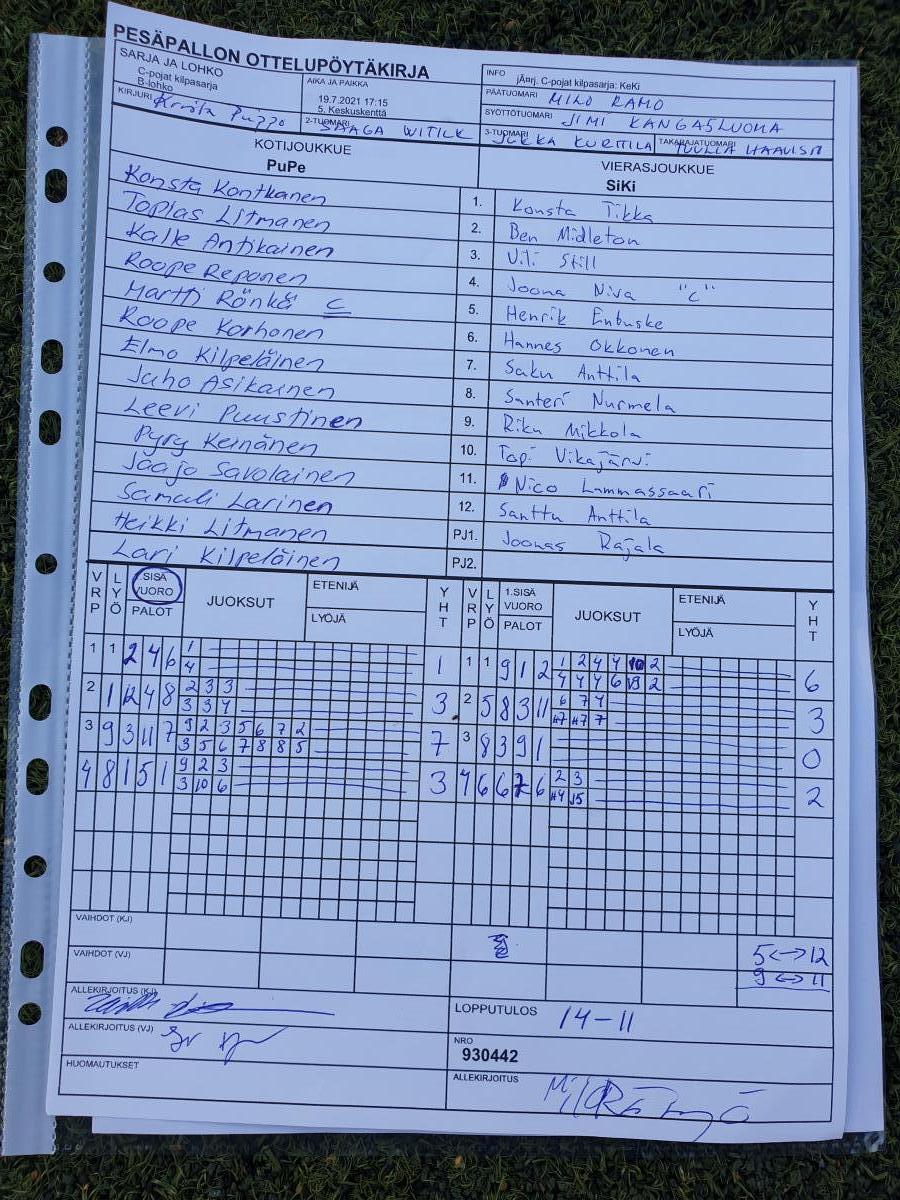 PESÄPALLON OTTELUPÖYTÄKIRJA
SARJA JA LOHKO
C-pojat kilpasarja
B-lohko
AIKA JA PAIKKA
19.7.2021 17:15
5. Keskuskenttä
INFO
jÄnrj. C-pojat kilpasarja: KeKi
PÄÄTUOMARI
SYÖTTÖTUOMARI JIMI KANGASLUOMA
KIRJURI
2-TUOMARI SAAGA
3-TUOMARI JUKKA KURTTILA TAKARAJATUOMARI TUULLA
KOTIJOUKKUE
PuPe
VIERASJOUKKUE
SiKi
Konsta Kontkanen 1. Konsta Tikka
Topias Litmanen 2. Ben Midleton
Kalle Antikainen 3. Vili Still
Roope Reponen 4. Joona Niva "C"
Martti Rönkä C 5. Henrik Enbuske
Roope Korhonen 6. Hannes Okkonen
Elmo Kilpeläinen 7. Saku Anttila
Juho Asikainen 8. Santeri Nurmela
Leevi Puustinen 9. Riku Mikkola
Pyry Keinänen 10. Topi Vikajärvi
Jaajo Savolainen 11. Nico Lammassaari
Samuli Larinen 12. Santtu Anttila
Heikki Litmanen PJ1. Joonas Rajala
Lari Kilpeläinen PJ2.
VRP LYÖ 1.SISÄ VUORO PALOT JUOKSUT ETENIJÄ LYÖJÄ YHT VRP LYÖ 1.SISÄ VUORO PALOT JUOKSUT ETENIJÄ LYÖJÄ YHT
1 1 2 4 6 1 1 1 1 9 1 2 1 2 4 4 10 2 6
4 4 4 4 6 2
2 1 12 4 8 2 3 3 3 2 5 8 3 11 6 7 4 3
3 3 4 #7 #7 7
3 9 3 11 7 9 2 3 5 6 7 2 7 3 8 3 9 1 0
3 5 6 7 8 8 5
4 8 1 5 1 9 2 3 3 4 6 6 7 6 2 3 2
3 10 6 #4 J5
VAIHDOT (KJ)
VAIHDOT (VJ) 5<->12
9 <-> 11
ALLEKIRJOITUS (KJ)
LOPPUTULOS 14-11
ALLEKIRJOITUS (VJ)
NRO
930442
HUOMAUTUKSET
ALLEKIRJOITUS